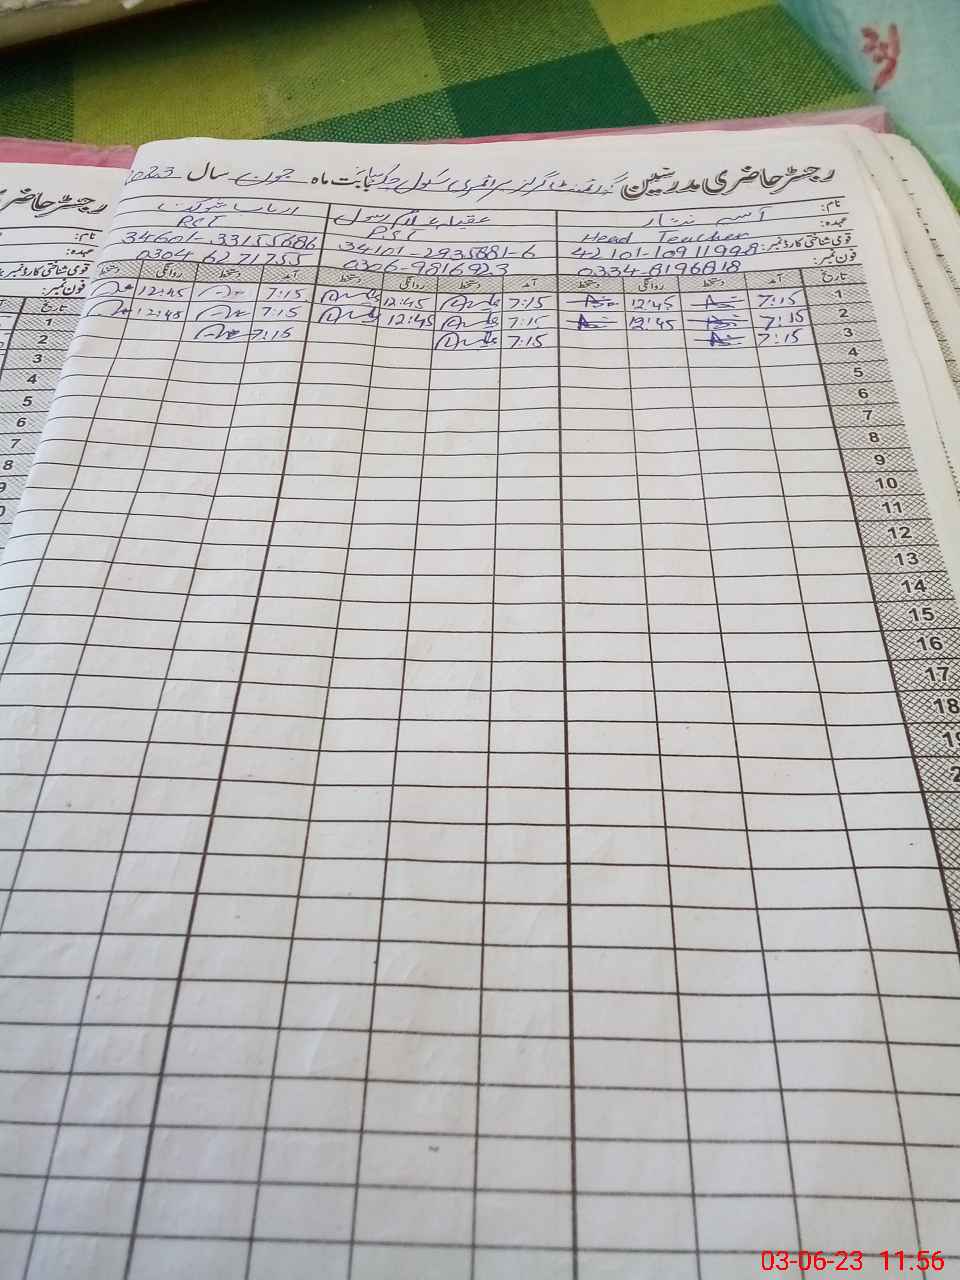 رجسٹر حاضری مدرسین گورنمنٹ گرلز پرائمری سکول بابت ماہ جون سال 2023
نام: آسیہ نثار عقیلہ غلام رسول
عہدہ: Head Teacher PST PST
قومی شناختی کارڈ نمبر: 42101-10911998 34101-2935881-6 34601-33155686
فون نمبر: 0334-8196818 0306-9816923 0304 6271755
تاریخ آمد دستخط روانگی دستخط آمد دستخط روانگی دستخط آمد دستخط روانگی دستخط
1 7:15 12:45 7:15 12:45 7:15 12:45
2 7:15 12:45 7:15 12:45 7:15 12:45
3 7:15 7:15 7:15
4
5
6
7
8
9
10
11
12
13
14
15
16
17
18
19
2
رجسٹر حاضری
نام:
عہدہ:
قومی شناختی کارڈ نمبر
فون نمبر:
تاریخ
1
2
3
4
5
6
7
8
9
03-06-23 11:56